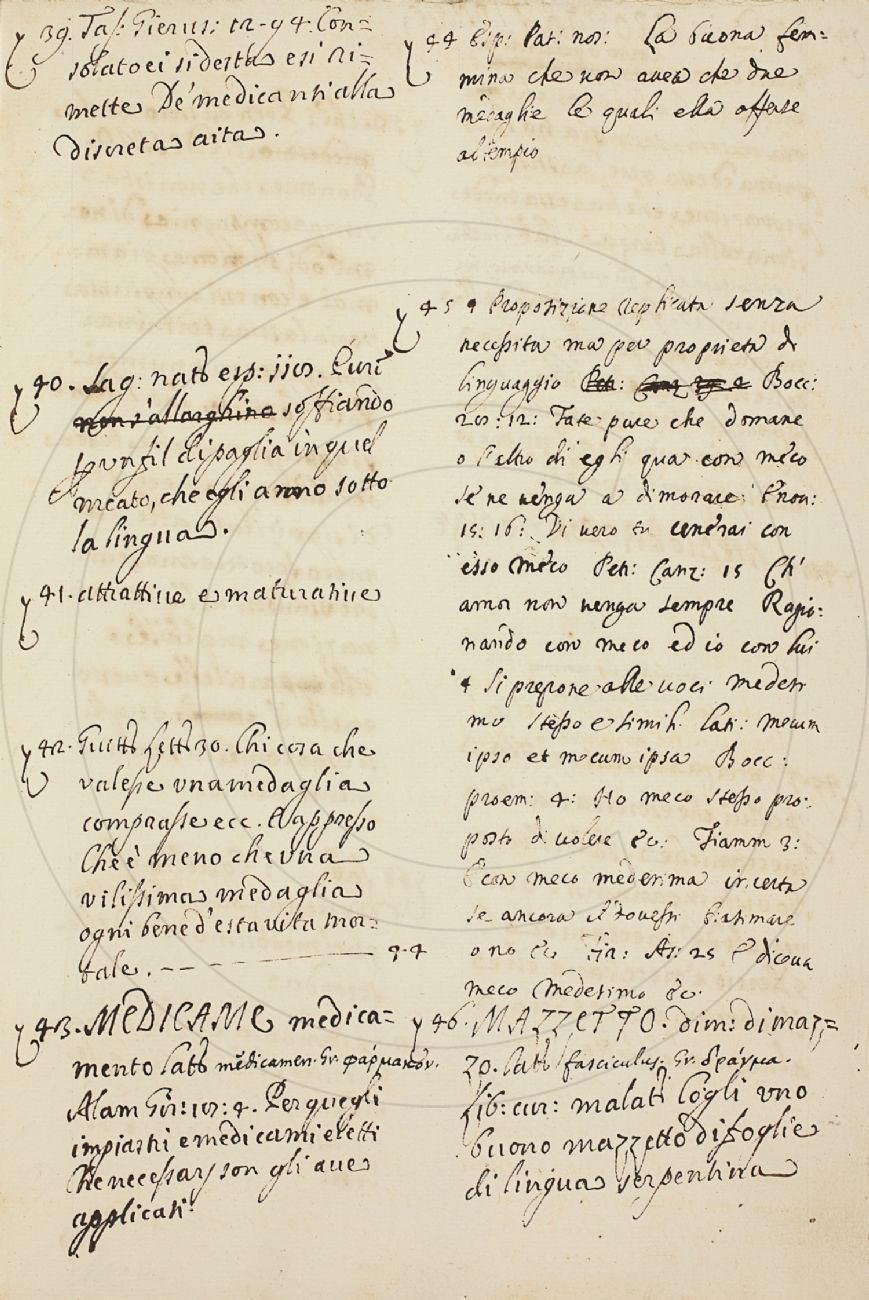 39. Tass: Gierus: 12-94. Con=
solato ei si desta e si ri=
mette De' medicanti alla
discreta aita.
40. Sag: nat: esp: 110. Euri
non s'allarghino soffiando
per un fil di paglia in quel
meato, che egli anno sotto
la lingua.
41. attrattiue e maturatiue
42. Guitt: lett: 30. Chi cosa che
valesse vna medaglia
comprasse ecc. E appresso
Che è meno che vna
vilissima medaglia
ogni bene d'esta vita mor=
tale. 44
43. MEDICAME medica=
mento Latt: medicamen. Gr. φάρμακον.
Alam: Gir: 10: 4. Per quegli
impiastri e medicami eletti
Che necessarj son gli aue
applicati.
44 Esp: Pat: nos: La buona fem=
mina che non auea che due
medaglie le quali ella offerse
al tempio
45 4 Proposizione replicata senza
necessita ma per proprieta di
linguaggio Petr: Canz Bocc:
20: 12: Fate pure che domane
o l'altro di egli qua con meco
se ne uenga a dimorare: E non:
15: 16: Di uero tu cenerai con
esso meco Petr: Canz: 15 Ch'
amor non uenga sempre Ragio=
nando con meco ed io con lui
4 Si prepone alle uoci medesi
mo stesso e simili. Lat: mecum
ipso et mecum ipsa Bocc:
proem: 4: Ho meco stesso pro=
posto di uolere &c: Fiamm 3:
E con meco medesima incerta
se ancora il douessi biasimare
o no &c Fir: As: 25 E diceua
meco medesimo &c.
46. MAZZETTO. dim: di maz=
zo. Latt: fasciculus. Gr. δράγμα.
Lib: cur: malatt: Cogli vno
buono mazzetto di foglie
di lingua serpentina